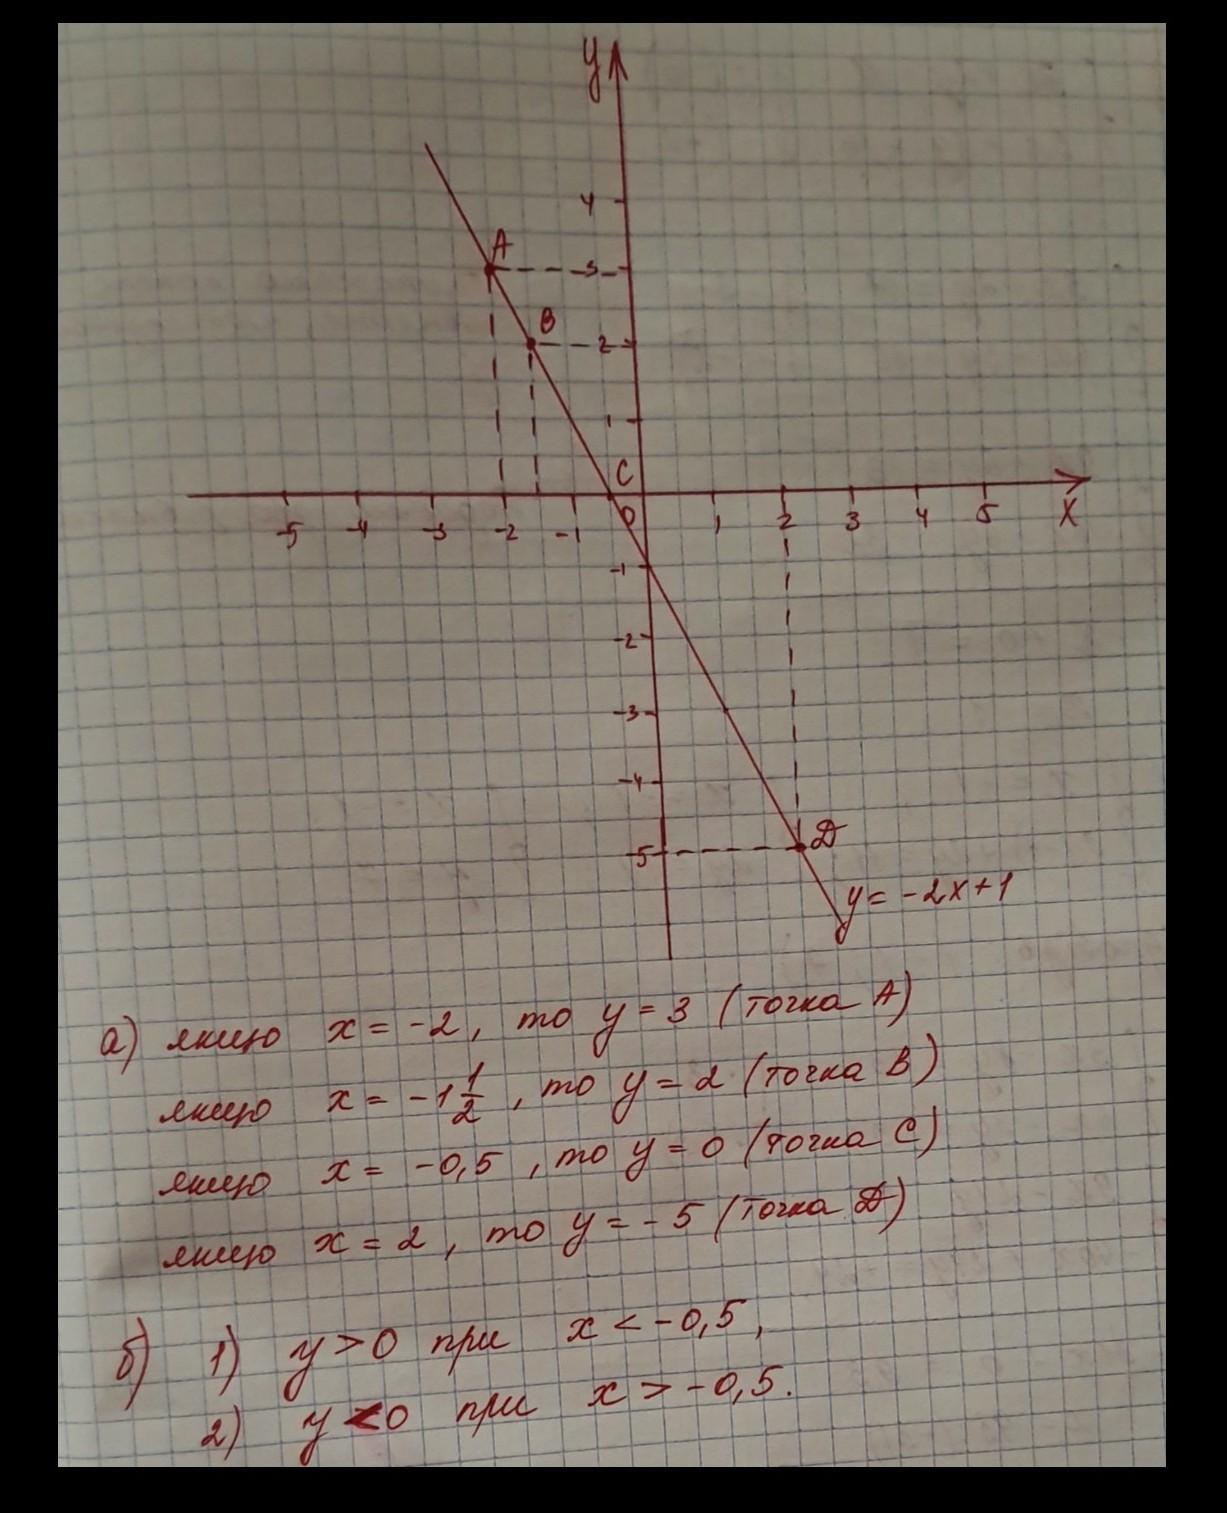 y
4
A
3
B
2
1
C
-5 -4 -3 -2 -1 0 1 2 3 4 5 X
-1
-2
-3
-4
-5
D
y = -2x+1
а) якщо x = -2, то y = 3 (точка A)
якщо x = -1 1/2, то y = 2 (точка B)
якщо x = -0,5, то y = 0 (точка C)
якщо x = 2, то y = -5 (точка D)
б) 1) y > 0 при x < -0,5,
2) y < 0 при x > -0,5.